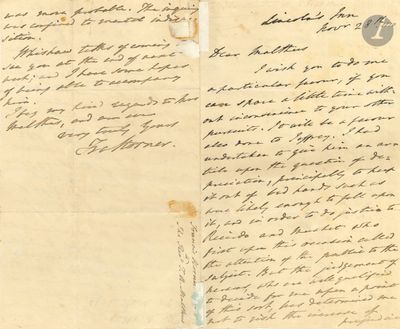 was more probable. The enquiry
was confined to mental indis-
sition.
Whishaw talks of coming
see you at the end of next
week; and I have some hopes
of being able to accompany
him.
I beg my kind regards to Mrs
Malthus, and am ever
very truly Yours
Fra Horner.
Lincoln's Inn
Novr 28th
Dear Malthus
I wish you to do me
a particular favour, if you
can spare a little time with-
out inconvenience to your other
pursuits. It will be a favour
also done to Jeffrey. I had
undertaken to give him an ar-
ticle upon the question of de-
preciation, principally to keep
it out of bad hands such as
are likely enough to fall upon
it, and in order to do justice to
Ricardo and Mushet who
first upon this occasion called
the attention of the public to the
subject. But the judgement of
persons, who are well qualified
to decide for me upon a point
of this sort, has determined me
not to risk the increase of